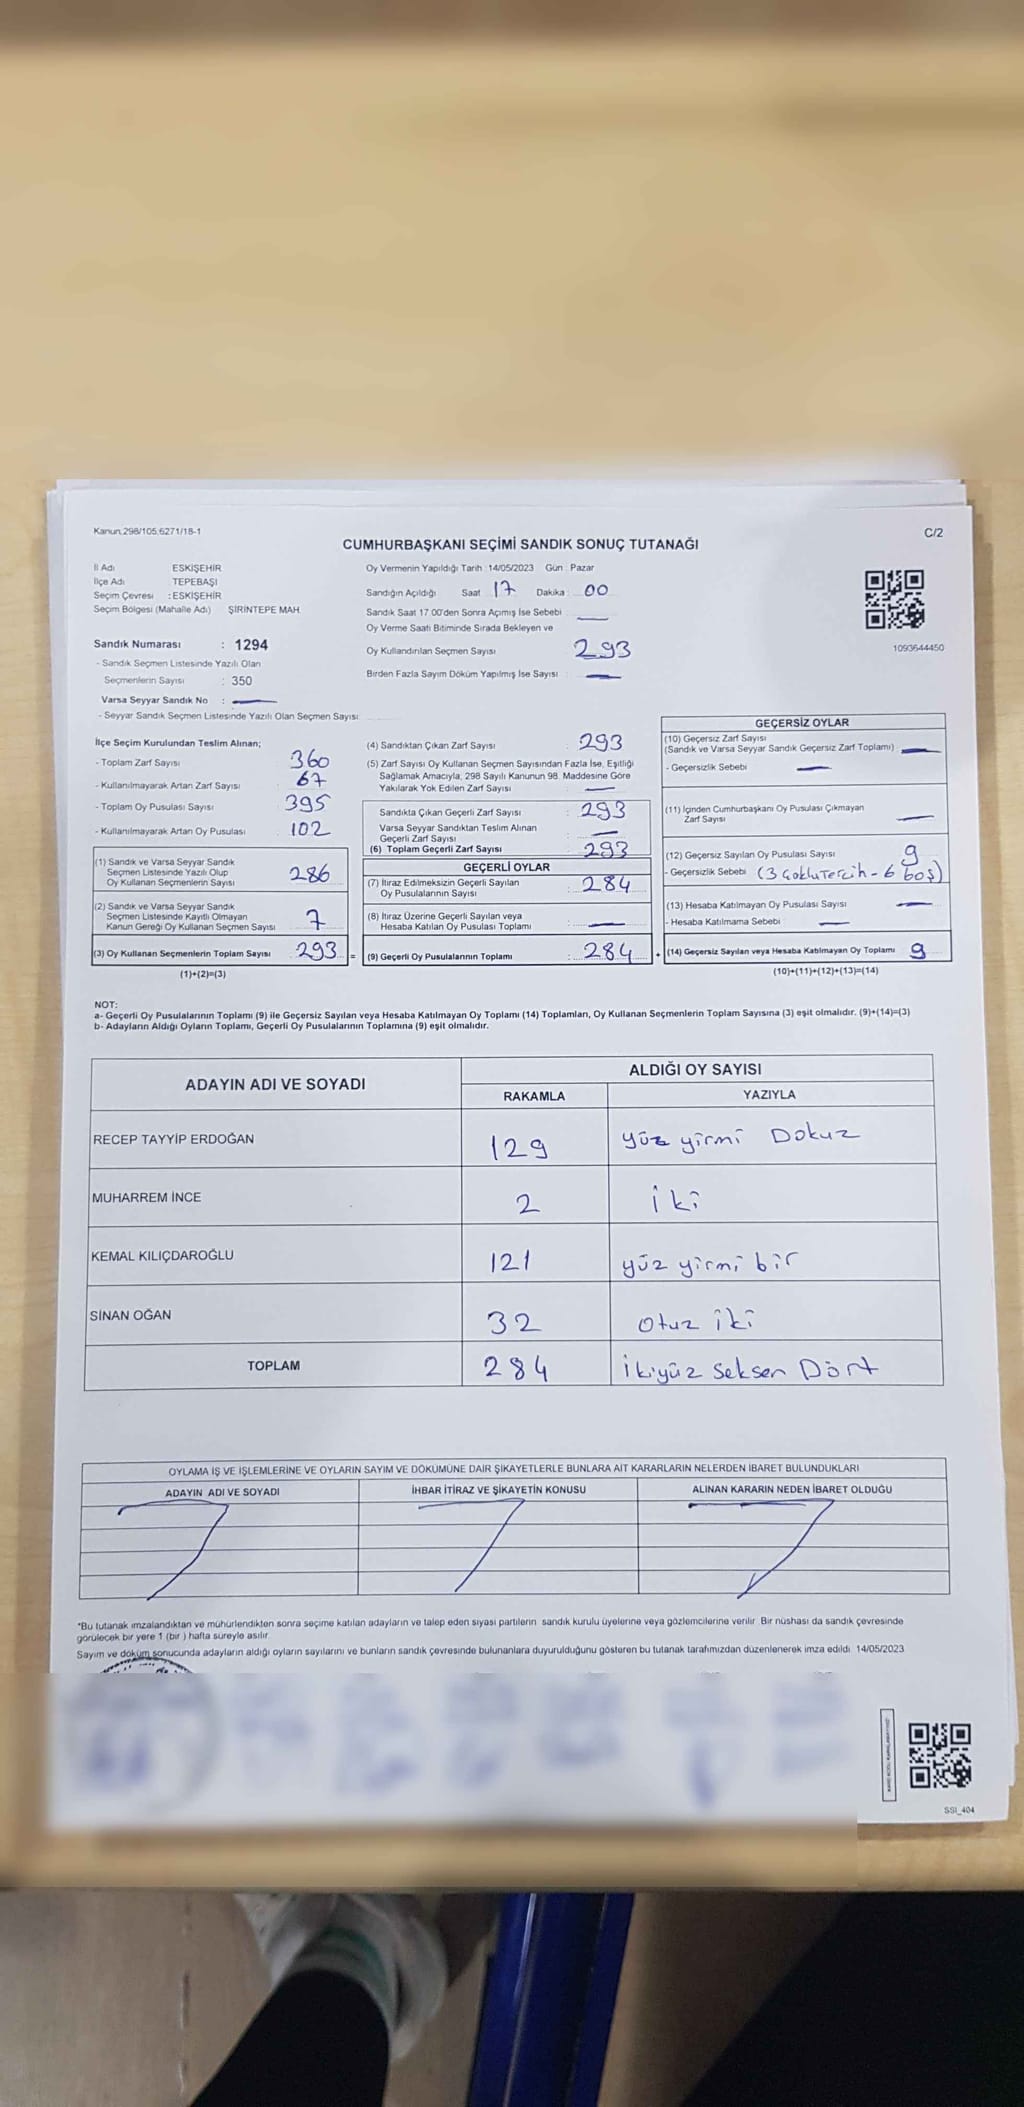 Kanun.298/105,6271/18-1
C/2
CUMHURBAŞKANI SEÇİMİ SANDIK SONUÇ TUTANAĞI
İl Adı ESKİŞEHİR
İlçe Adı TEPEBAŞI
Seçim Çevresi : ESKİŞEHİR
Seçim Bölgesi (Mahalle Adı) ŞİRİNTEPE MAH.
Sandık Numarası : 1294
- Sandık Seçmen Listesinde Yazılı Olan
Seçmenlerin Sayısı : 350
Varsa Seyyar Sandık No :
- Seyyar Sandık Seçmen Listesinde Yazılı Olan Seçmen Sayısı
Oy Vermenin Yapıldığı Tarih : 14/05/2023 Gün : Pazar
Sandığın Açıldığı Saat 17 Dakika : 00
Sandık Saat 17.00'den Sonra Açımış İse Sebebi
Oy Verme Saati Bitiminde Sırada Bekleyen ve
Oy Kullandırılan Seçmen Sayısı 293
Birden Fazla Sayım Döküm Yapılmış İse Sayısı :
1093644450
İlçe Seçim Kurulundan Teslim Alınan;
- Toplam Zarf Sayısı 360
- Kullanılmayarak Artan Zarf Sayısı : 67
- Toplam Oy Pusulası Sayısı : 395
- Kullanılmayarak Artan Oy Pusulası : 102
(1) Sandık ve Varsa Seyyar Sandık
Seçmen Listesinde Yazılı Olup
Oy Kullanan Seçmenlerin Sayısı 286
(2) Sandık ve Varsa Seyyar Sandık
Seçmen Listesinde Kayıtlı Olmayan
Kanun Gereği Oy Kullanan Seçmen Sayısı 7
(3) Oy Kullanan Seçmenlerin Toplam Sayısı : 293 =
(1)+(2)=(3)
(4) Sandıktan Çıkan Zarf Sayısı : 293
(5) Zarf Sayısı Oy Kullanan Seçmen Sayısından Fazla İse, Eşitliği
Sağlamak Amacıyla, 298 Sayılı Kanunun 98. Maddesine Göre
Yakılarak Yok Edilen Zarf Sayısı :
Sandıkta Çıkan Geçerli Zarf Sayısı : 293
Varsa Seyyar Sandıktan Teslim Alınan
Geçerli Zarf Sayısı :
(6) Toplam Geçerli Zarf Sayısı : 293
GEÇERLİ OYLAR
(7) İtiraz Edilmeksizin Geçerli Sayılan
Oy Pusulalarının Sayısı : 284
(8) İtiraz Üzerine Geçerli Sayılan veya
Hesaba Katılan Oy Pusulası Toplamı :
(9) Geçerli Oy Pusulalarının Toplamı : 284 +
GEÇERSİZ OYLAR
(10) Geçersiz Zarf Sayısı
(Sandık ve Varsa Seyyar Sandık Geçersiz Zarf Toplamı) :
- Geçersizlik Sebebi
(11) İçinden Cumhurbaşkanı Oy Pusulası Çıkmayan
Zarf Sayısı
(12) Geçersiz Sayılan Oy Pusulası Sayısı : 9
- Geçersizlik Sebebi (3 çoklu tercih - 6 boş)
(13) Hesaba Katılmayan Oy Pusulası Sayısı
- Hesaba Katılmama Sebebi :
(14) Geçersiz Sayılan veya Hesaba Katılmayan Oy Toplamı 9
(10)+(11)+(12)+(13)=(14)
NOT:
a- Geçerli Oy Pusulalarının Toplamı (9) ile Geçersiz Sayılan veya Hesaba Katılmayan Oy Toplamı (14) Toplamları, Oy Kullanan Seçmenlerin Toplam Sayısına (3) eşit olmalıdır. (9)+(14)=(3)
b- Adayların Aldığı Oyların Toplamı, Geçerli Oy Pusulalarının Toplamına (9) eşit olmalıdır.
ADAYIN ADI VE SOYADI ALDIĞI OY SAYISI
RAKAMLA YAZIYLA
RECEP TAYYİP ERDOĞAN 129 yüz yirmi Dokuz
MUHARREM İNCE 2 iki
KEMAL KILIÇDAROĞLU 121 yüz yirmi bir
SİNAN OĞAN 32 Otuz iki
TOPLAM 284 ikiyüz seksen Dört
OYLAMA İŞ VE İŞLEMLERİNE VE OYLARIN SAYIM VE DÖKÜMÜNE DAİR ŞİKAYETLERLE BUNLARA AİT KARARLARIN NELERDEN İBARET BULUNDUKLARI
ADAYIN ADI VE SOYADI İHBAR İTİRAZ VE ŞİKAYETİN KONUSU ALINAN KARARIN NEDEN İBARET OLDUĞU
*Bu tutanak imzalandıktan ve mühürlendikten sonra seçime katılan adayların ve talep eden siyasi partilerin sandık kurulu üyelerine veya gözlemcilerine verilir. Bir nüshası da sandık çevresinde
görülecek bir yere 1 (bir ) hafta süreyle asılır.
Sayım ve döküm sonucunda adayların aldığı oyların sayılarını ve bunların sandık çevresinde bulunanlara duyurulduğunu gösteren bu tutanak tarafımızdan düzenlenerek imza edildi. 14/05/2023
SSI_404